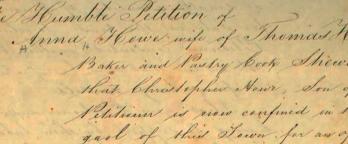 Humble Petition of
Anna Howe wife of Thomas
Baker and Pastry Cook Shew
that Christopher Howe, Son of
Petitioner is now confined in
gaol of this Town for an